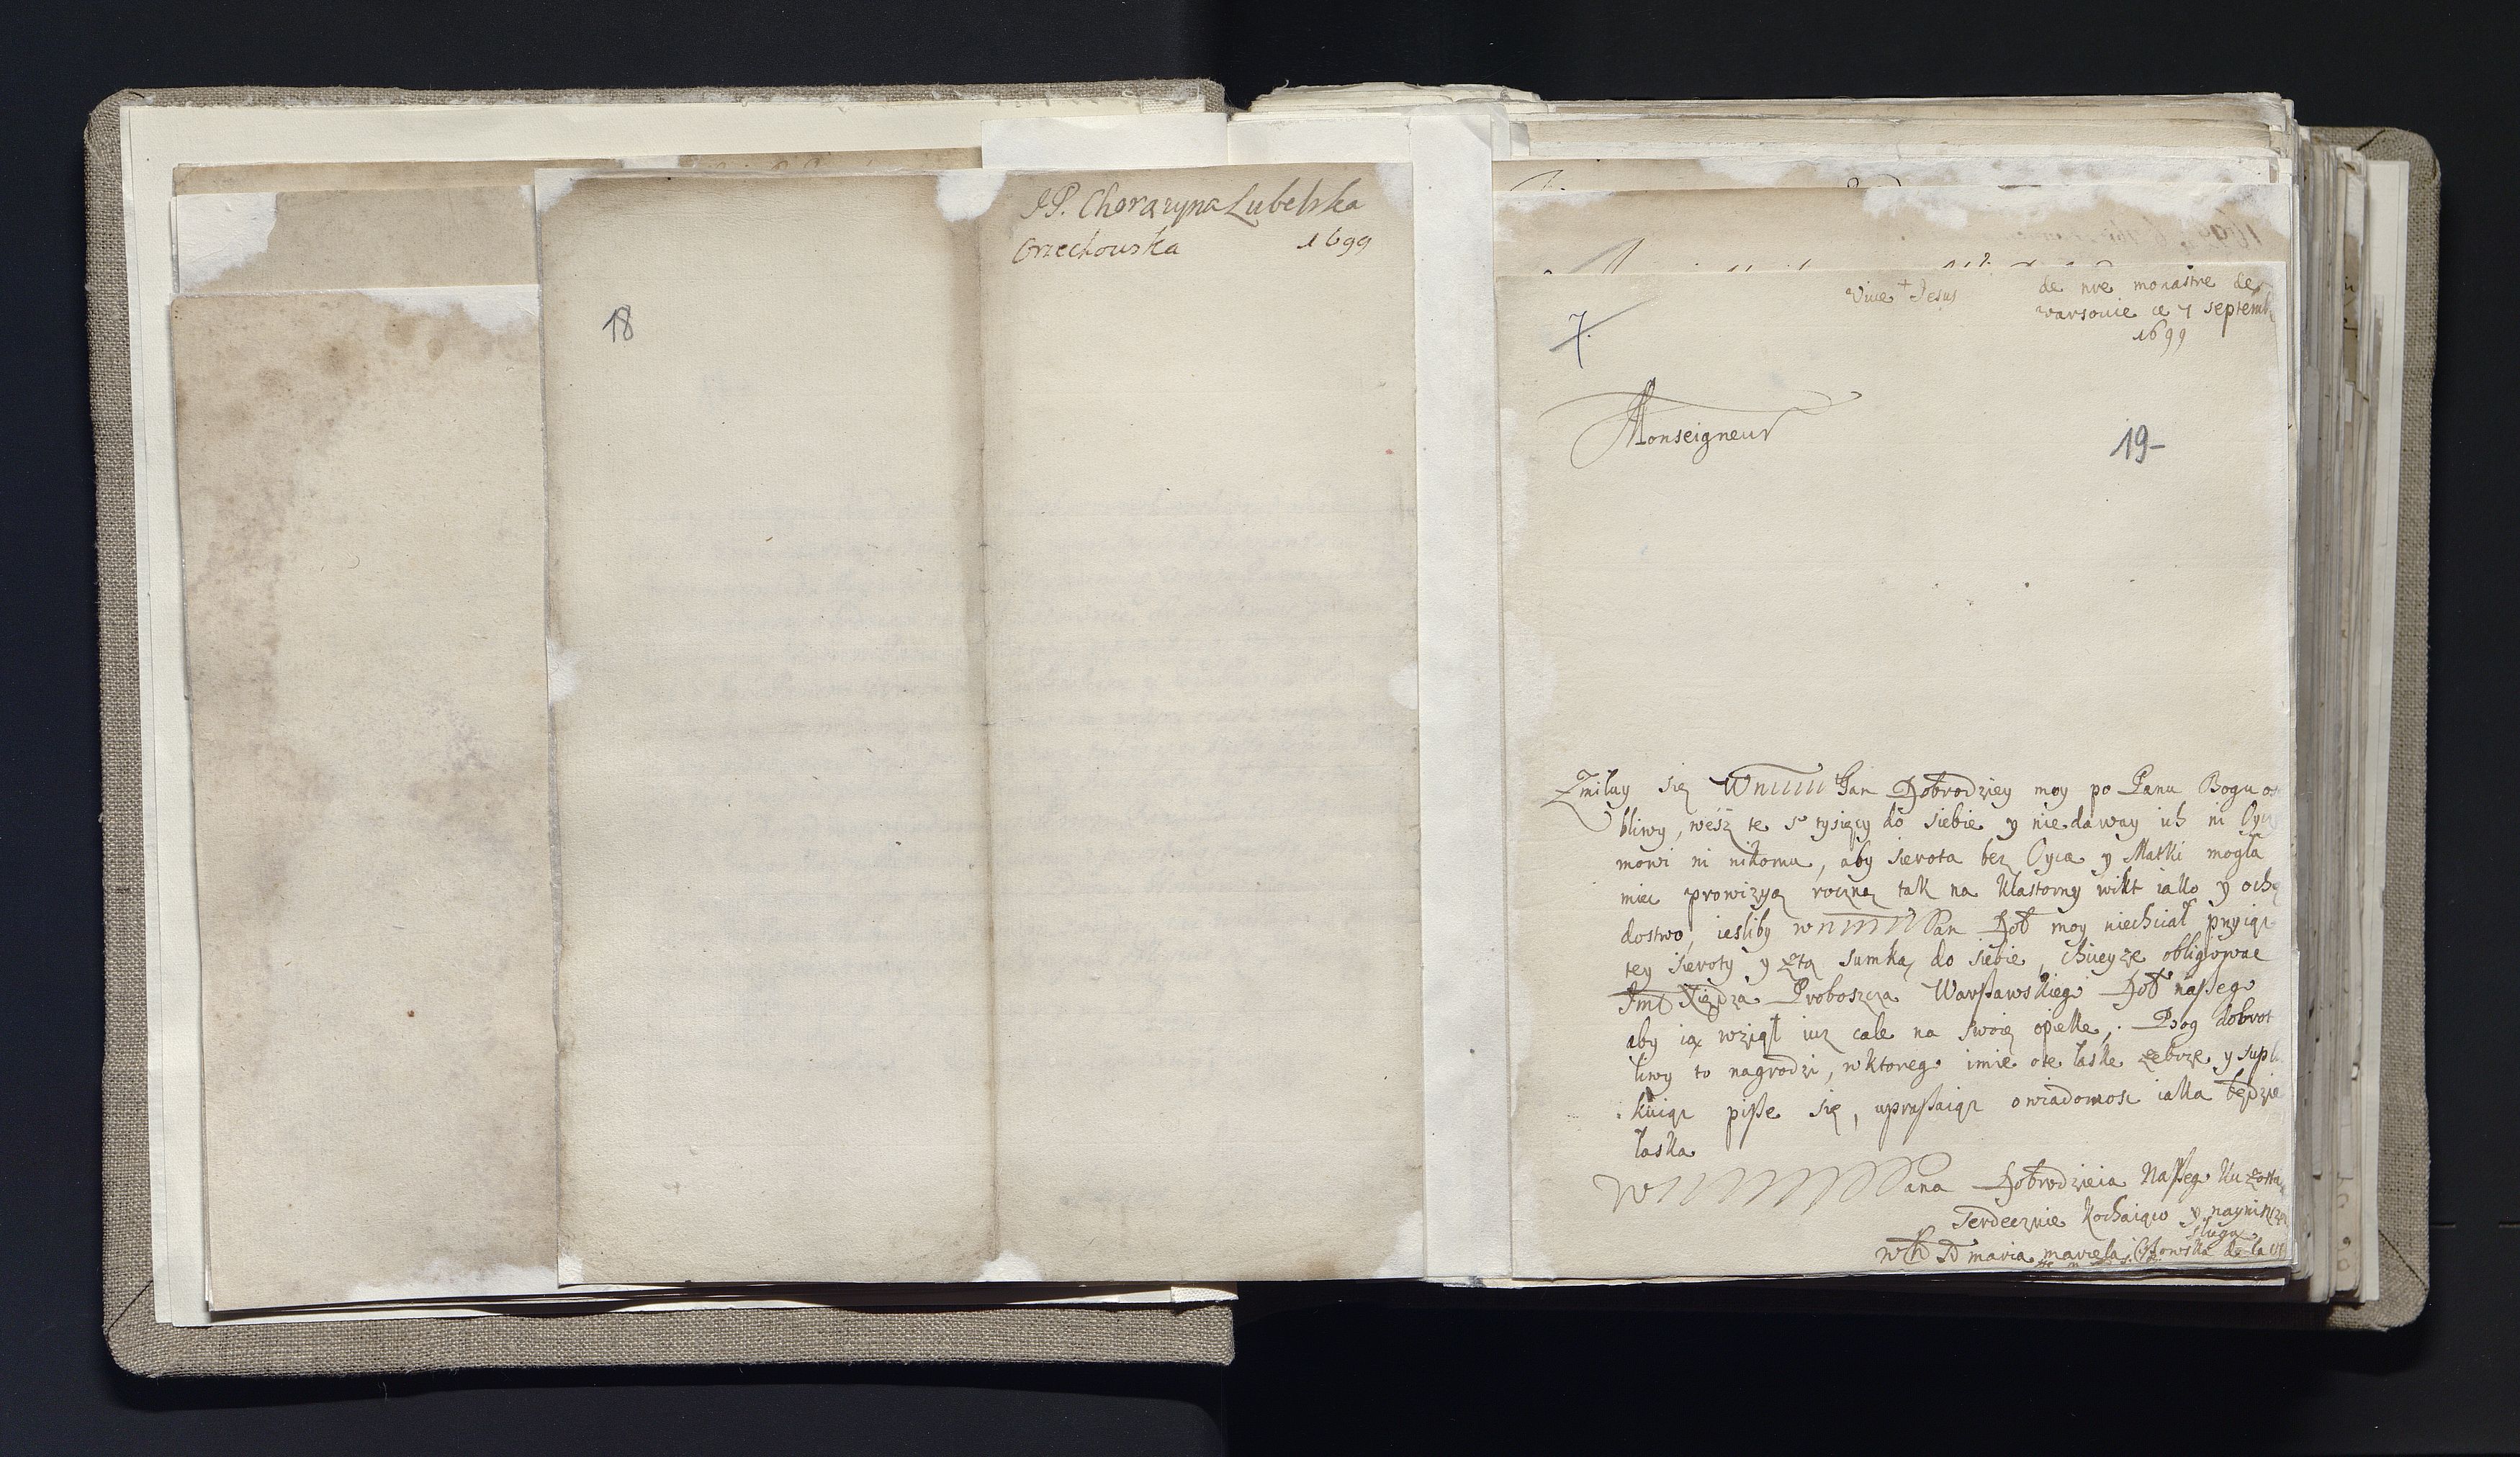 JP. Chorązyna Lubelska
Orzechowska 1699
18
Vive + Jesus
de nre monastre de
warsovie ce 7 septemb
1699
7.
Monseigneur
19-
Zmiluy się Pan Dobrodziey moy po Panu Bogu os
bliwy, weśz te tysięcy do siebie y niedaway ich ni Oyc
mowi ni nikomu, aby sierota bez Oyca y Matki mogla
miec prowizyą roczną tak na klastorny wikt iako y ochę
dostwo, iesliby Pan Dob moy niechciał przyiąc
tey sieroty y ztą sumką do siebie, chcieyze obligowac
Jmć Xiędza Proboszcza Warßawskiego Dob naßego
aby ią wziął iuz cale na swoię opiekę, Bog dobrot
liwy to nagrodzi, wktorego imie ote łaske zebrzę y supli
kuiąc pißę się, upraßaiąc owiadomosc iaka będzie
łaska
ana Dobrodzieia Naßego
serdecznie kochaiąco y nayniższą
sługa
maria de la